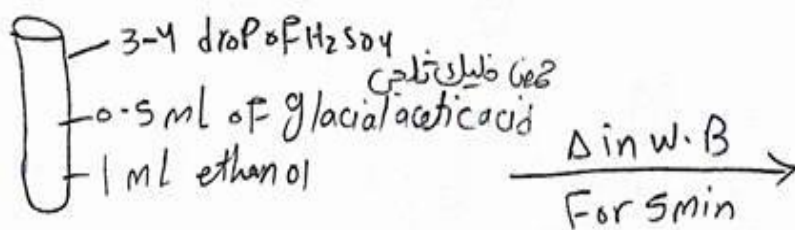 3-4 drop of H2SO4
حمض خليك ثلجي
0.5 ml of glacial acetic acid
1 ml ethanol
Δ in W.B
For 5min